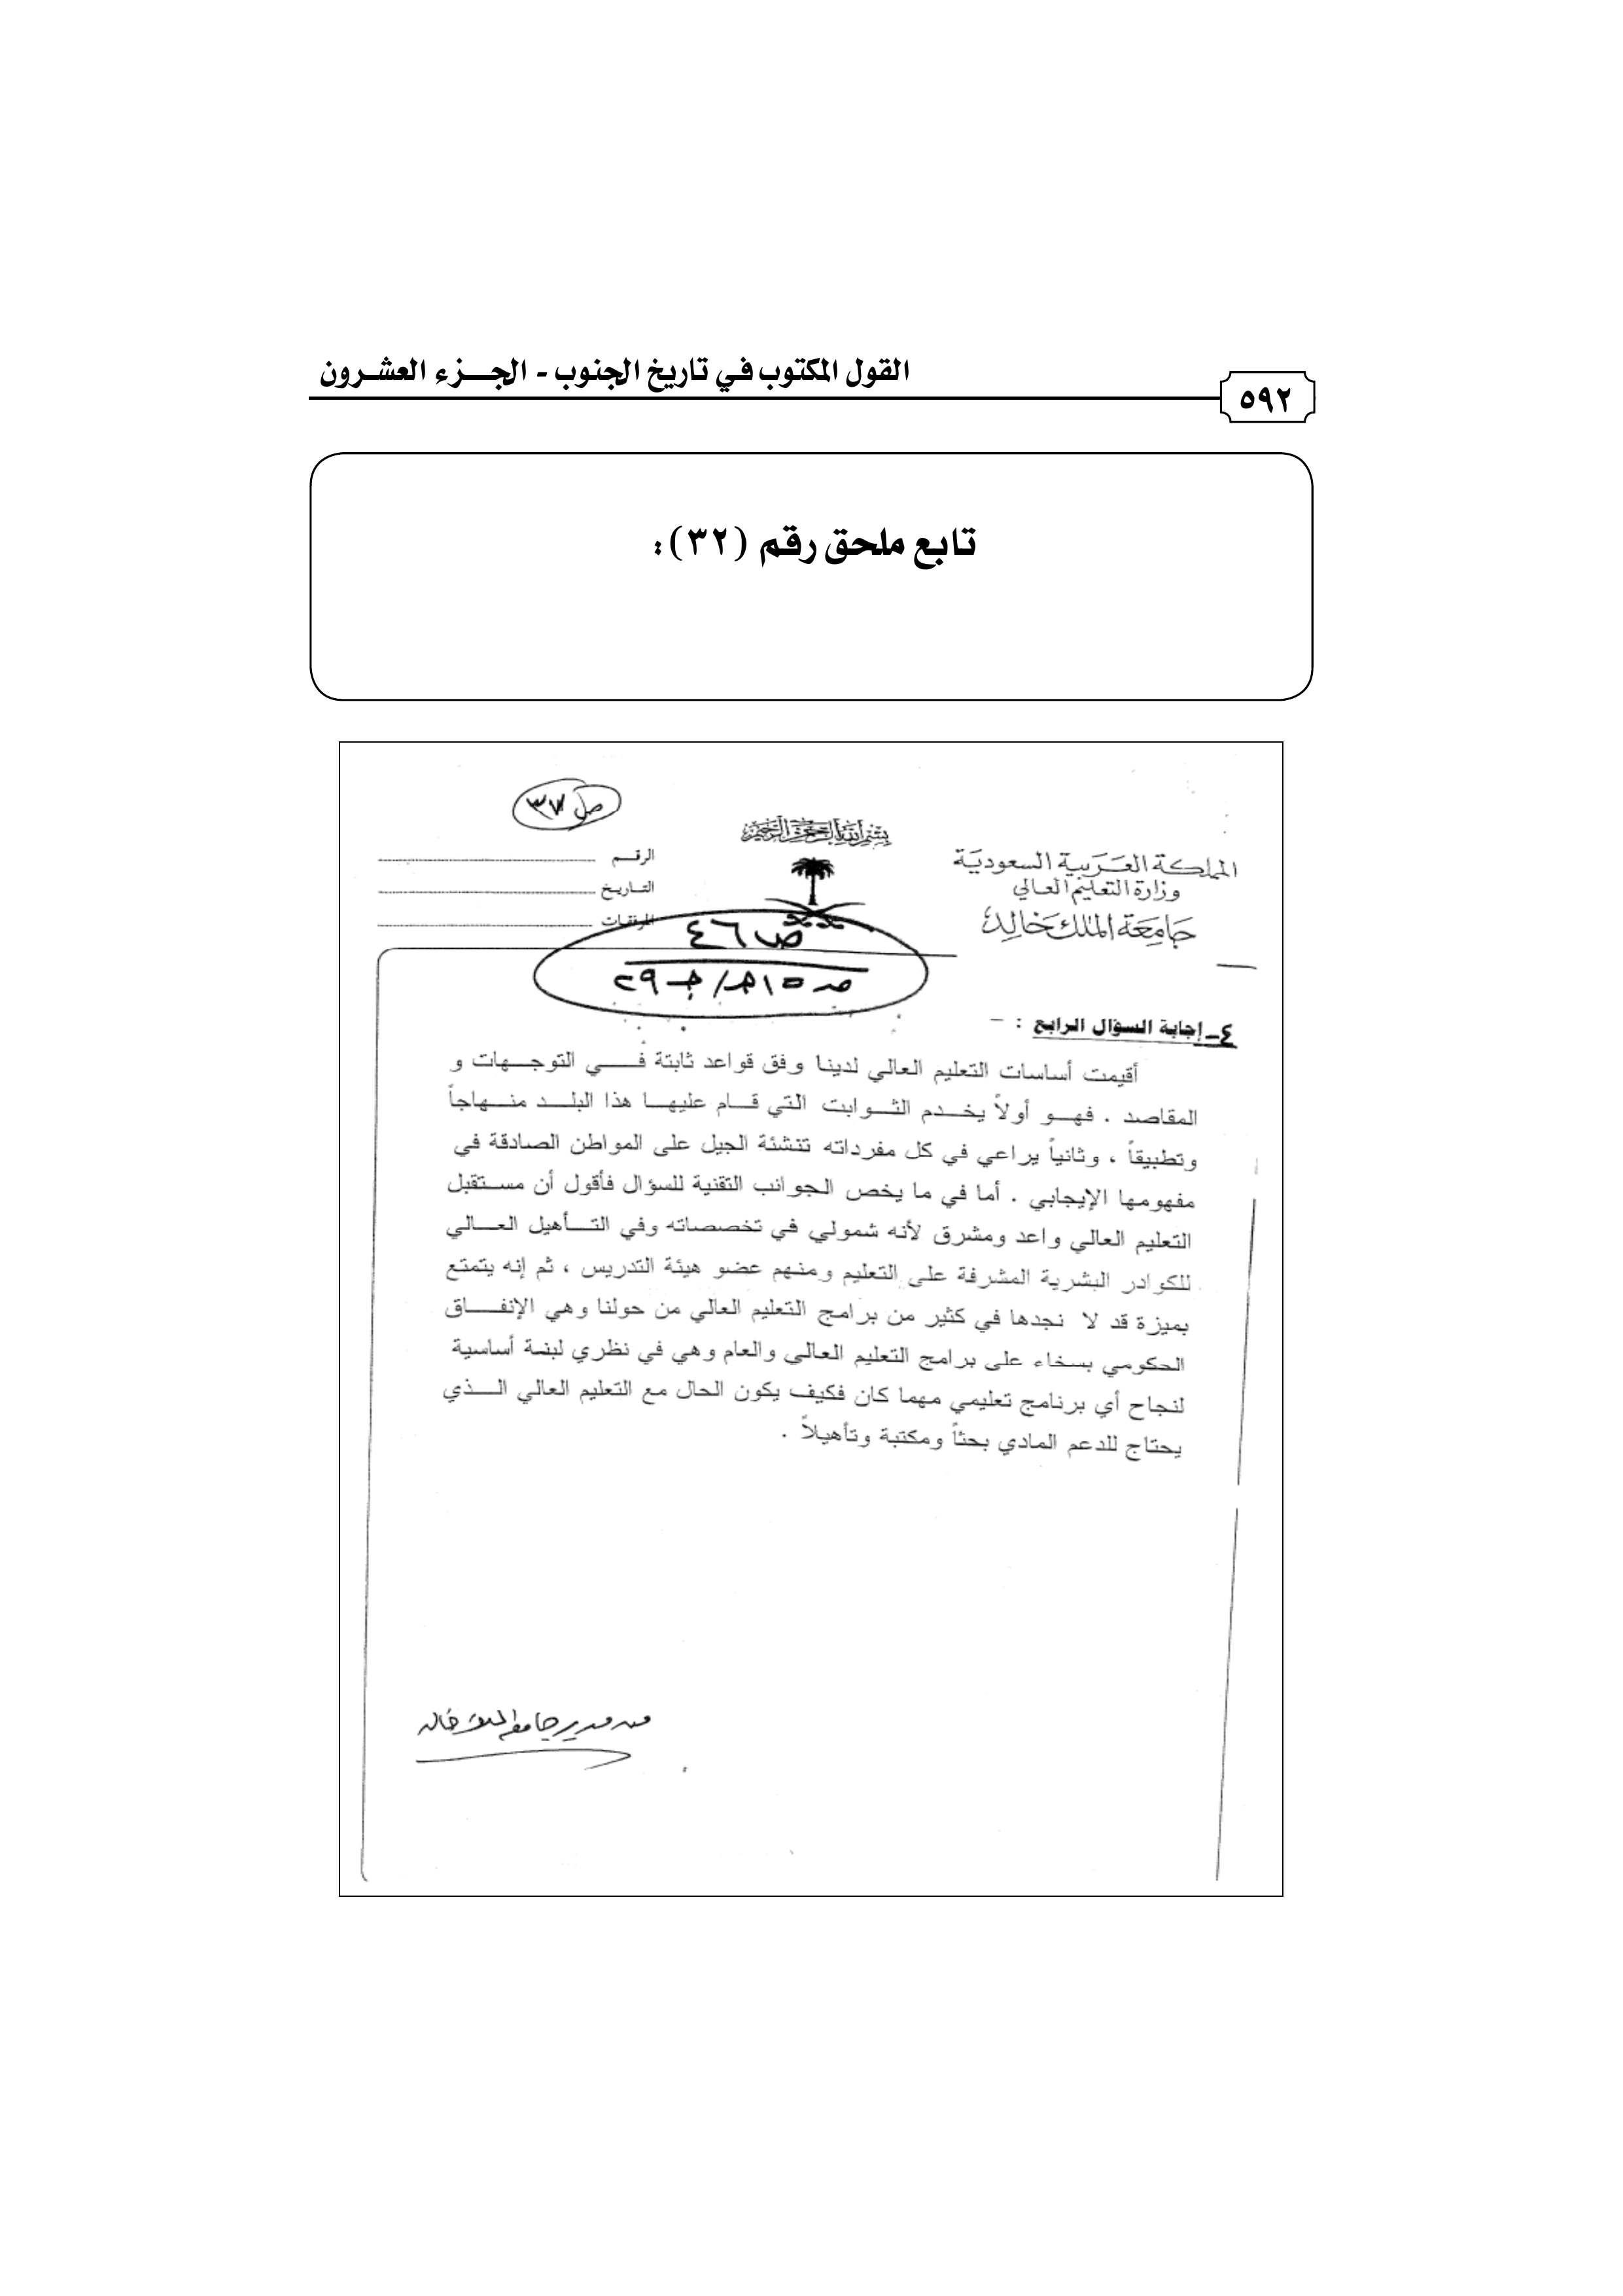 القول المكتوب في تاريخ الجنوب - الجـــزء العشـرون
٥٩٢
تابع ملحق رقم (٣٢):
ص ٣٧
بسم الله الرحمن الرحيم
المملكة العربية السعودية
وزارة التعليم العالي
جامعة الملك خالد
الرقـم
التـاريـخ
المرفقـات
ص ٤٦
٤- إجابة السؤال الرابع : -
أقيمت أساسات التعليم العالي لدينا وفق قواعد ثابتة فـــي التوجـــهات و
المقاصد . فهـــو أولاً يخـــدم الثـــوابت التي قـــام عليهـــا هذا البلـــد منـــهاجاً
وتطبيقاً ، وثانياً يراعي في كل مفرداته تنشئة الجيل على المواطن الصادقة في
مفهومها الإيجابي . أما في ما يخص الجوانب التقنية للسؤال فأقول أن مســتقبل
التعليم العالي واعد ومشرق لأنه شمولي في تخصصاته وفي التـــأهيل العـــالي
للكوادر البشرية المشرفة على التعليم ومنهم عضو هيئة التدريس ، ثم إنه يتمتع
بميزة قد لا نجدها في كثير من برامج التعليم العالي من حولنا وهي الإنفـــاق
الحكومي بسخاء على برامج التعليم العالي والعام وهي في نظري لبنة أساسية
لنجاح أي برنامج تعليمي مهما كان فكيف يكون الحال مع التعليم العالي الـــذي
يحتاج للدعم المادي بحثاً ومكتبة وتأهيلاً .
من مدير جامعة الملك خالد